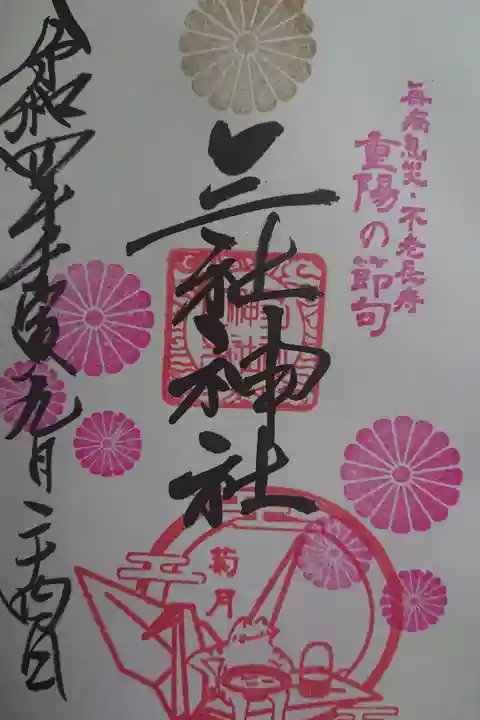 無病息災・不老長寿
重陽の節句
三社神社
菊月
令和四年壬寅九月二十四日